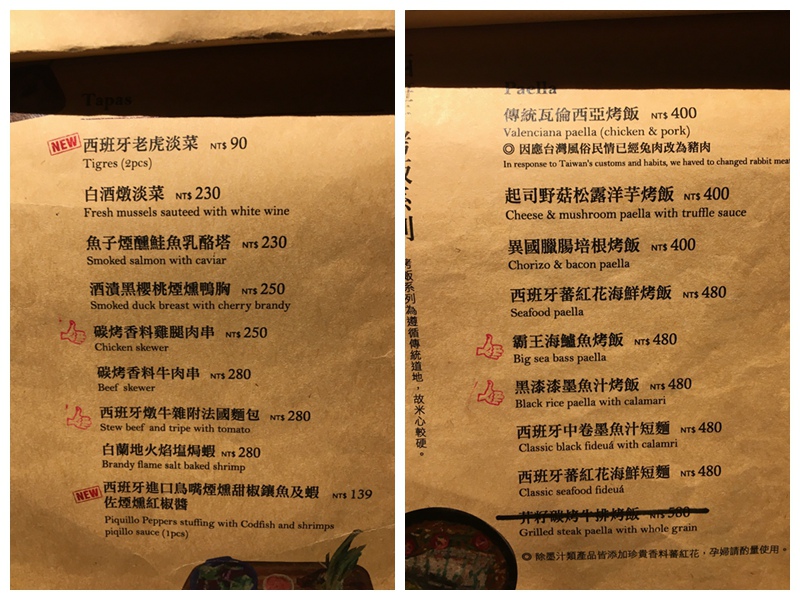 Tapas
NEW 西班牙老虎淡菜 NT$ 90
Tigres (2pcs)
白酒燉淡菜 NT$ 230
Fresh mussels sauteed with white wine
魚子煙醺鮭魚乳酪塔 NT$ 230
Smoked salmon with caviar
酒漬黑櫻桃煙燻鴨胸 NT$ 250
Smoked duck breast with cherry brandy
碳烤香料雞腿肉串 NT$ 250
Chicken skewer
碳烤香料牛肉串 NT$ 280
Beef skewer
西班牙燉牛雜附法國麵包 NT$ 280
Stew beef and tripe with tomato
白蘭地火焰塩焗蝦 NT$ 280
Brandy flame salt baked shrimp
NEW 西班牙進口鳥嘴煙燻甜椒鑲魚及蝦 NT$ 139
佐煙燻紅椒醬
Piquillo Peppers stuffing with Codfish and shrimps
piqillo sauce (1pcs)
Paella
傳統瓦倫西亞烤飯 NT$ 400
Valenciana paella (chicken & pork)
◎ 因應台灣風俗民情已經兔肉改為豬肉
In response to Taiwan's customs and habits, we haved to changed rabbit meat
起司野菇松露洋芋烤飯 NT$ 400
Cheese & mushroom paella with truffle sauce
異國臘腸培根烤飯 NT$ 400
Chorizo & bacon paella
西班牙蕃紅花海鮮烤飯 NT$ 480
Seafood paella
霸王海鱸魚烤飯 NT$ 480
Big sea bass paella
黑漆漆墨魚汁烤飯 NT$ 480
Black rice paella with calamari
西班牙中卷墨魚汁短麵 NT$ 480
Classic black fideuá with calamri
西班牙蕃紅花海鮮短麵 NT$ 480
Classic seafood fideuá
芥籽碳烤牛排烤飯 NT$ 580
Grilled steak paella with whole grain
◎ 除墨汁類產品皆添加珍貴香料蕃紅花，孕婦請酌量使用。
烤飯系列
烤飯系列為遵循傳統道地，故米心較硬。